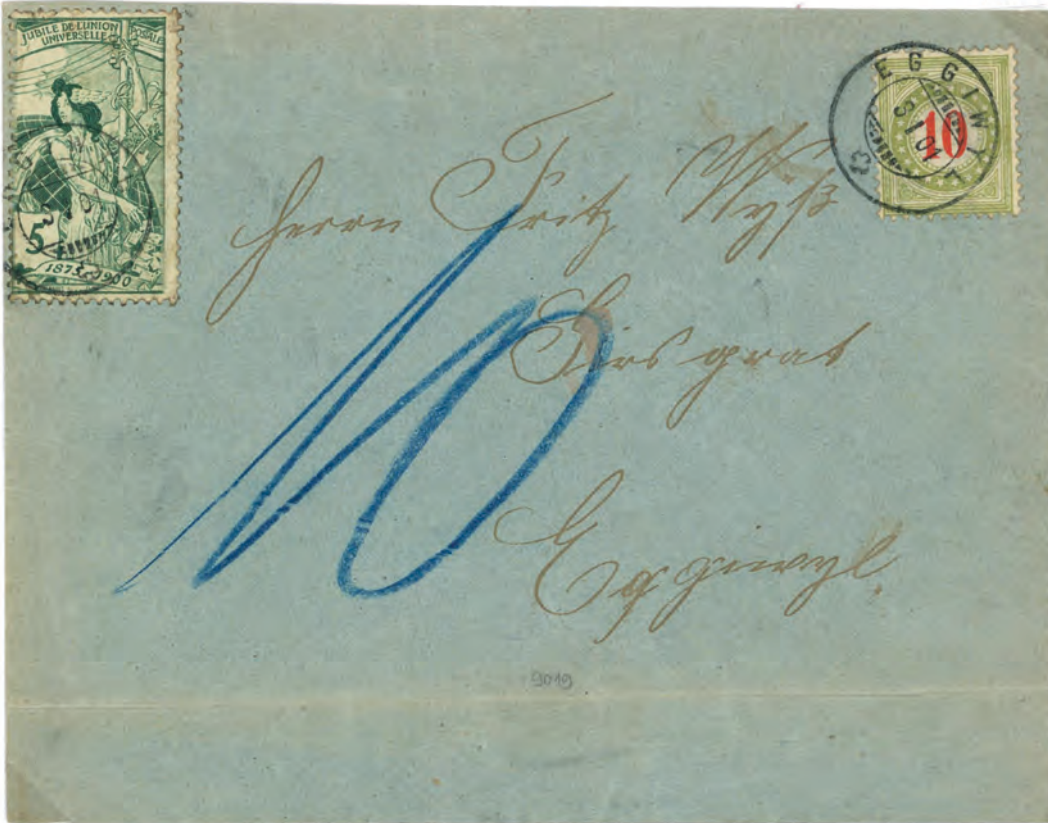 JUBILÉ DE L'UNION POSTALE
UNIVERSELLE
5
1875-1900
EGGIWYL
10 I 01
10
Herrn Fritz Wyß
grat
Eggiwyl.
10
9019